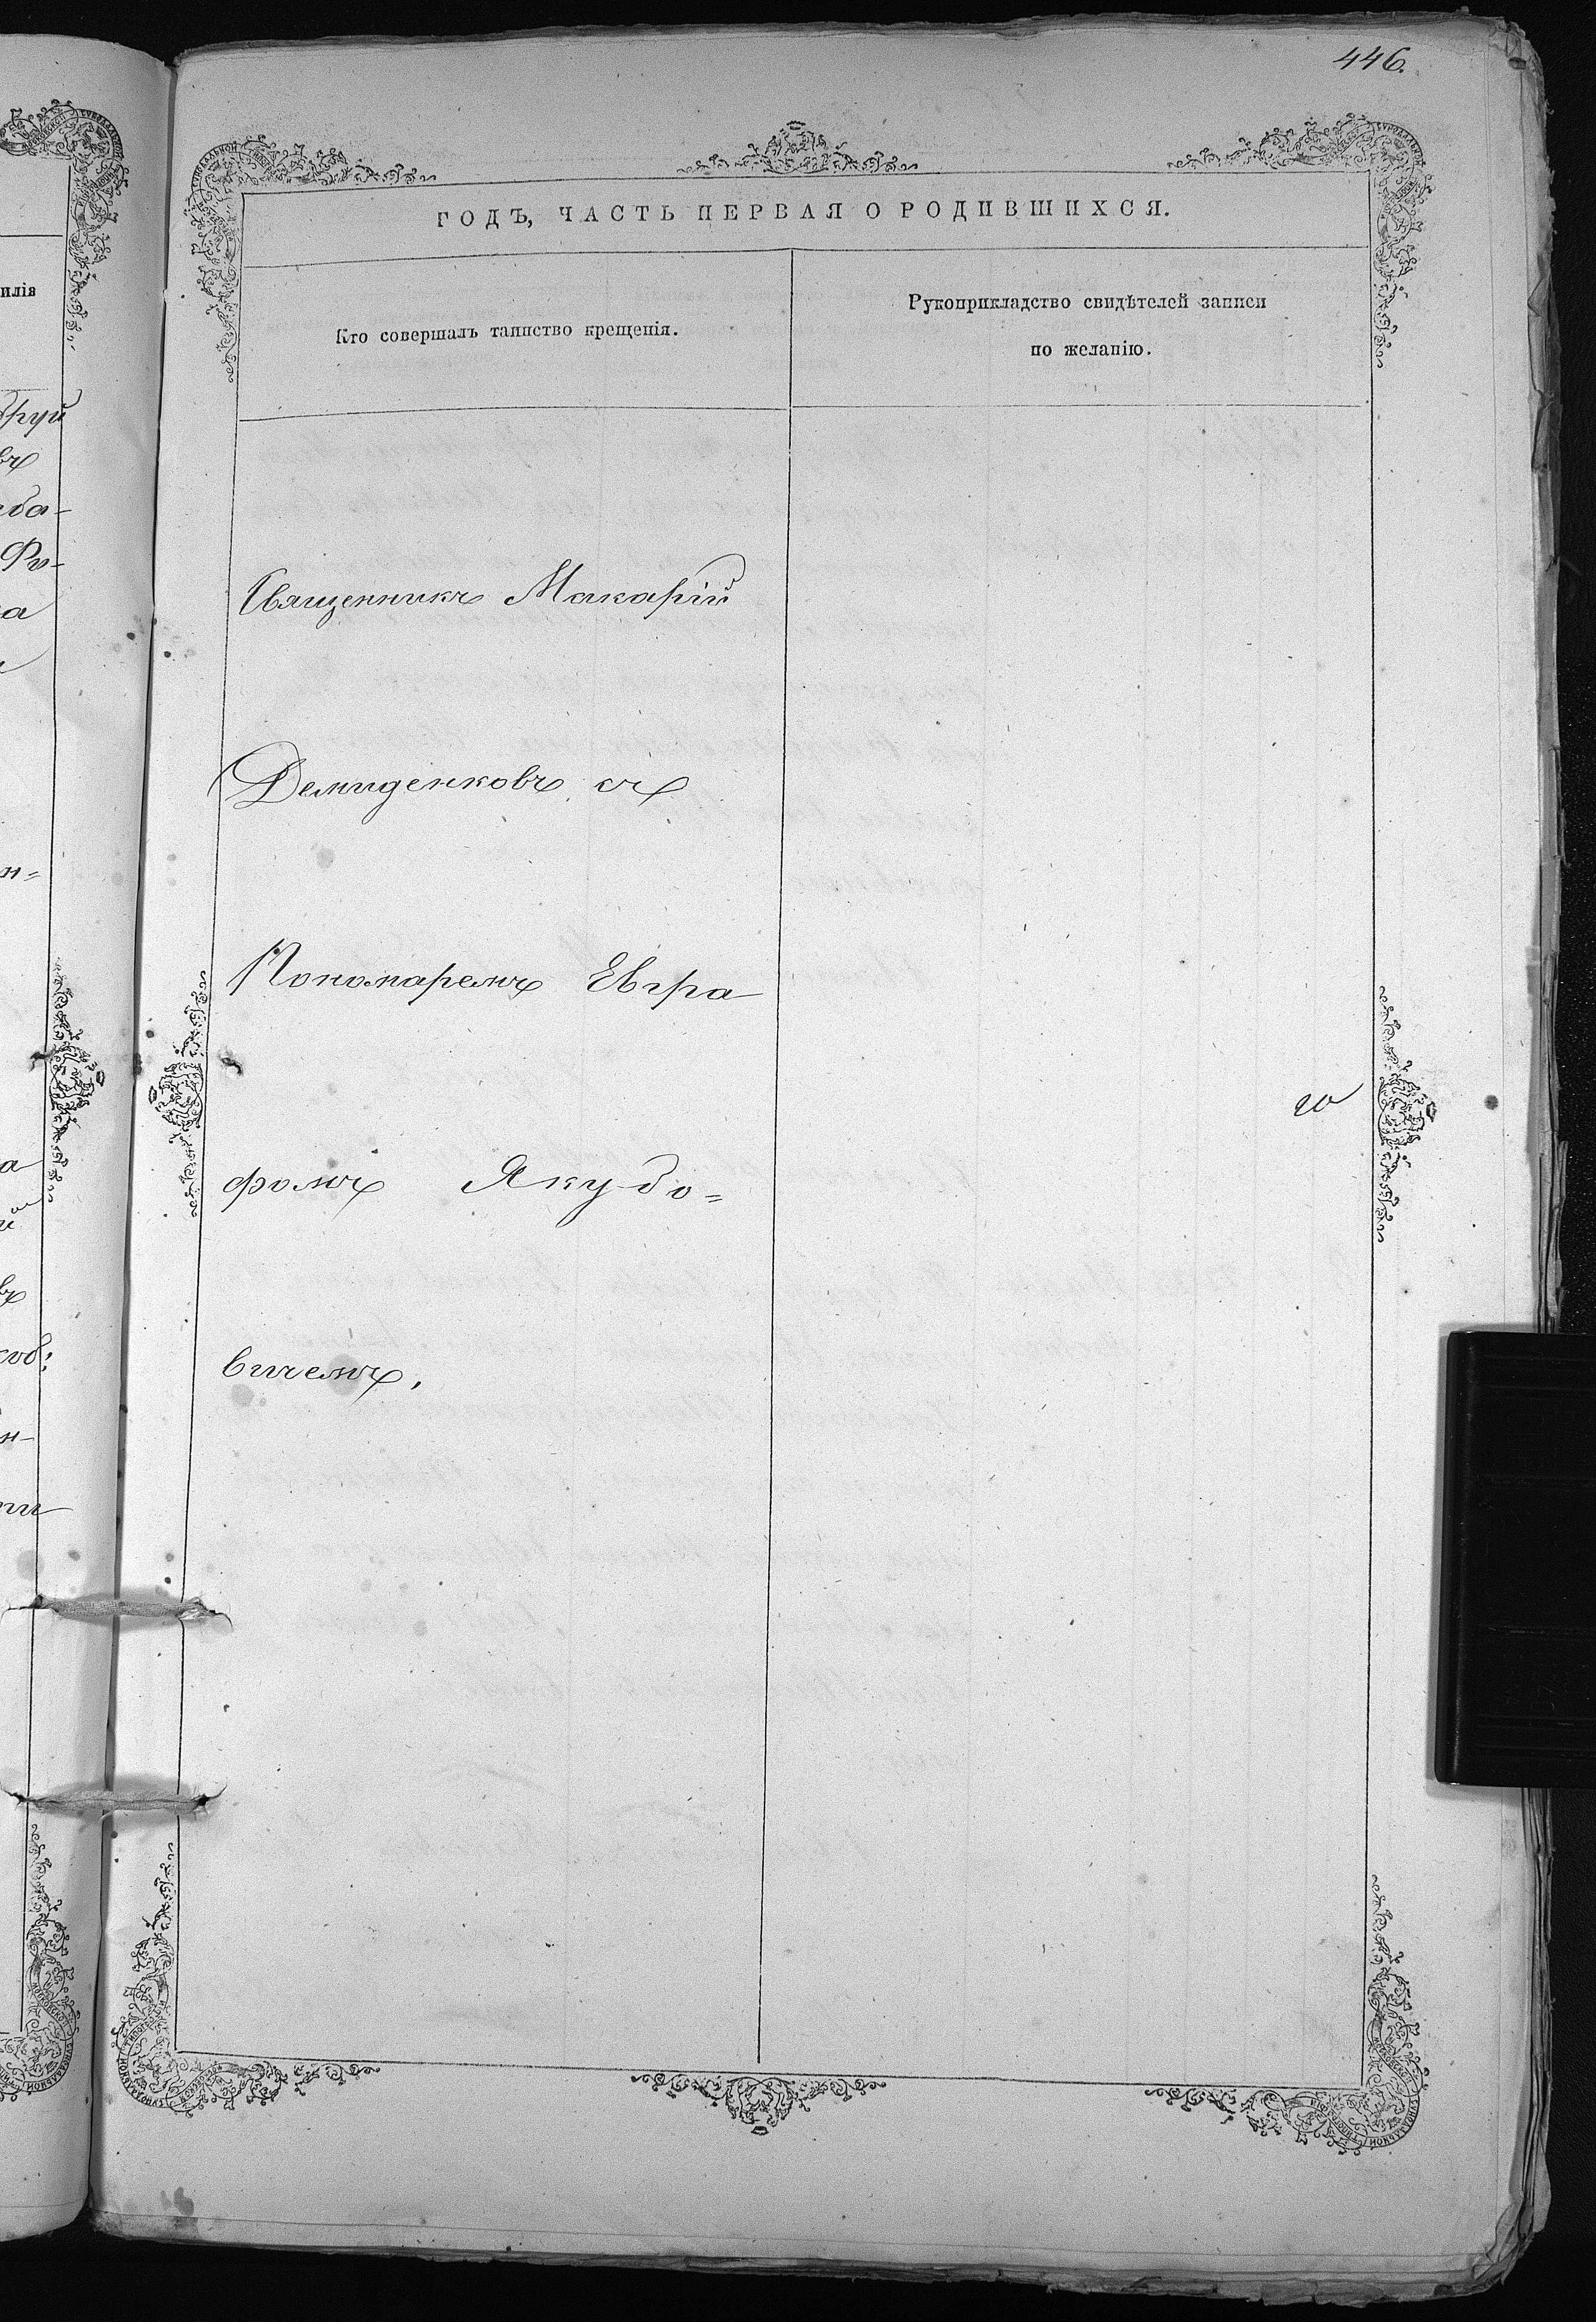 446.
ГОДЪ, ЧАСТЬ ПЕРВАЯ О РОДИВШИХСЯ.
Кто совершалъ таинство крещенія.
Рукоприкладство свидѣтелей записи
по желанію.
илія
Священникъ Макарій
Демиденковъ съ
Пономаремъ Евгра
фомъ Якубо=
вичемъ,
го